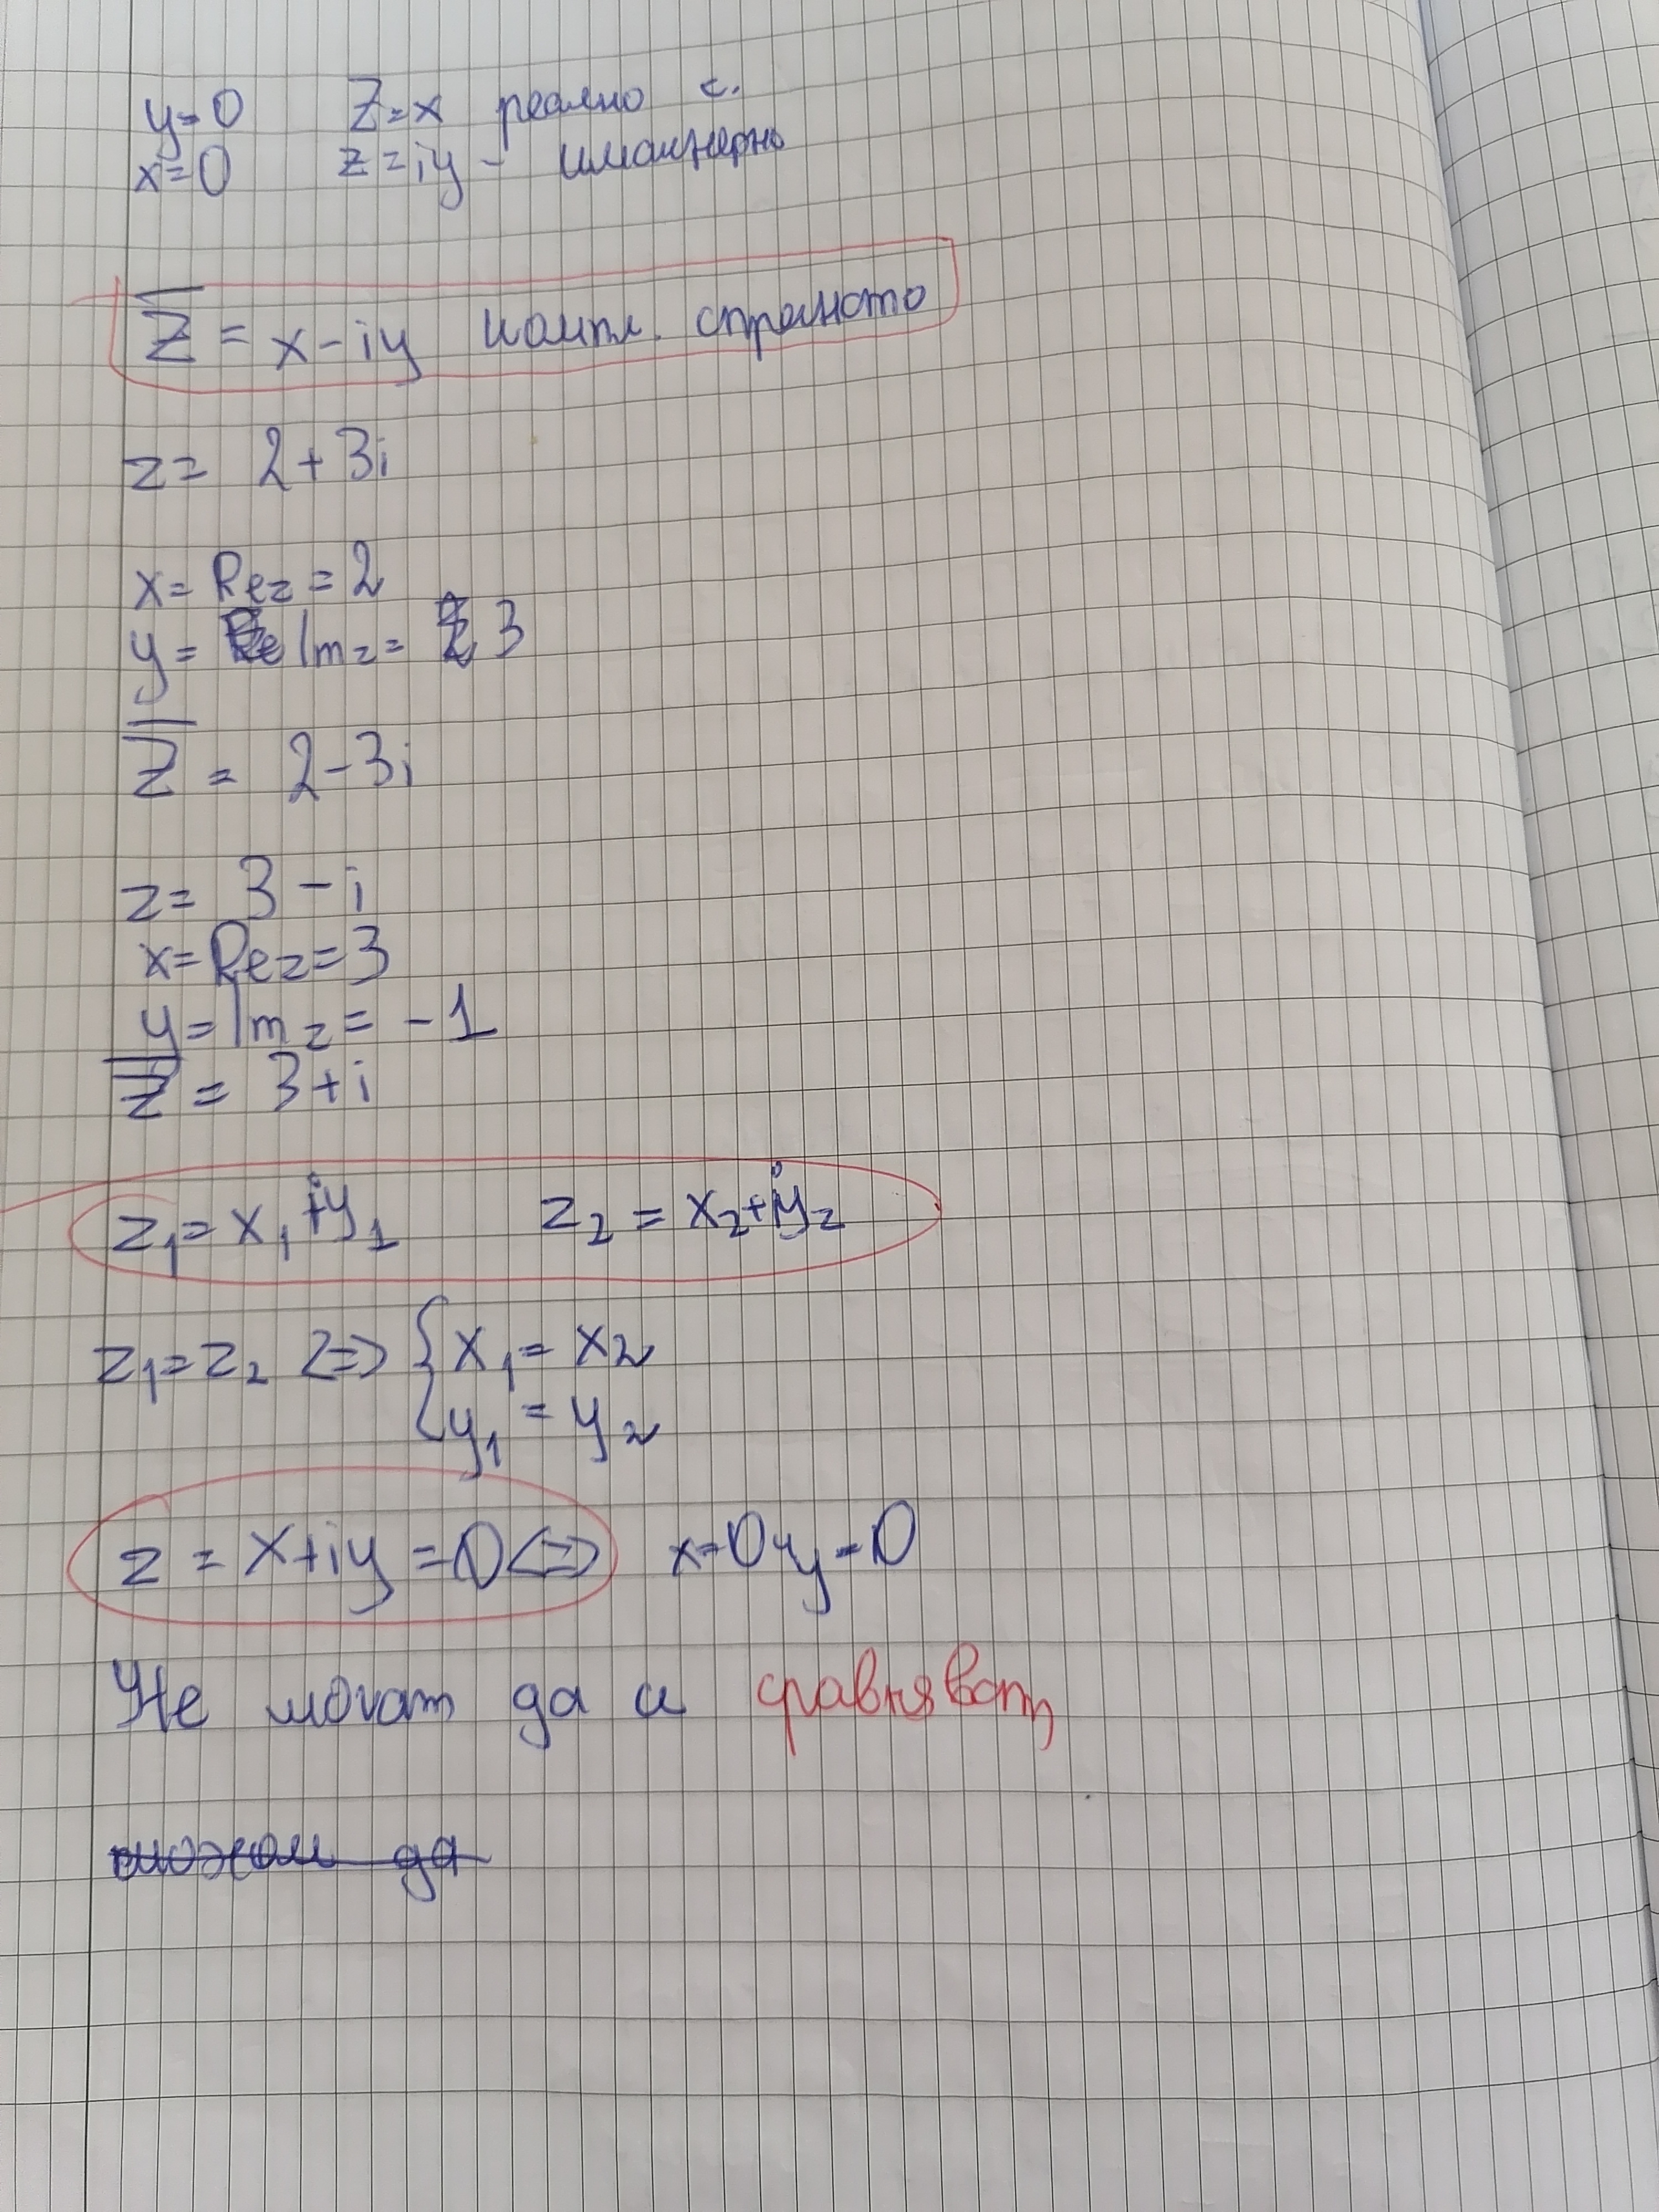 y=0 z=x реално с.
x=0 z=iy - имагинерно
z̅ = x-iy компл. спрегнато
z= 2+3i
x= Re z = 2
y= Im z = 3
z̅ = 2-3i
z= 3-i
x= Re z = 3
y= Im z = -1
z̅ = 3+i
z₁= x₁+iy₁ z₂ = x₂+iy₂
z₁=z₂ <=> { x₁= x₂
y₁ = y₂
z = x+iy =0 <=> x=0 и y=0
Не могат да с сравняват
можем да